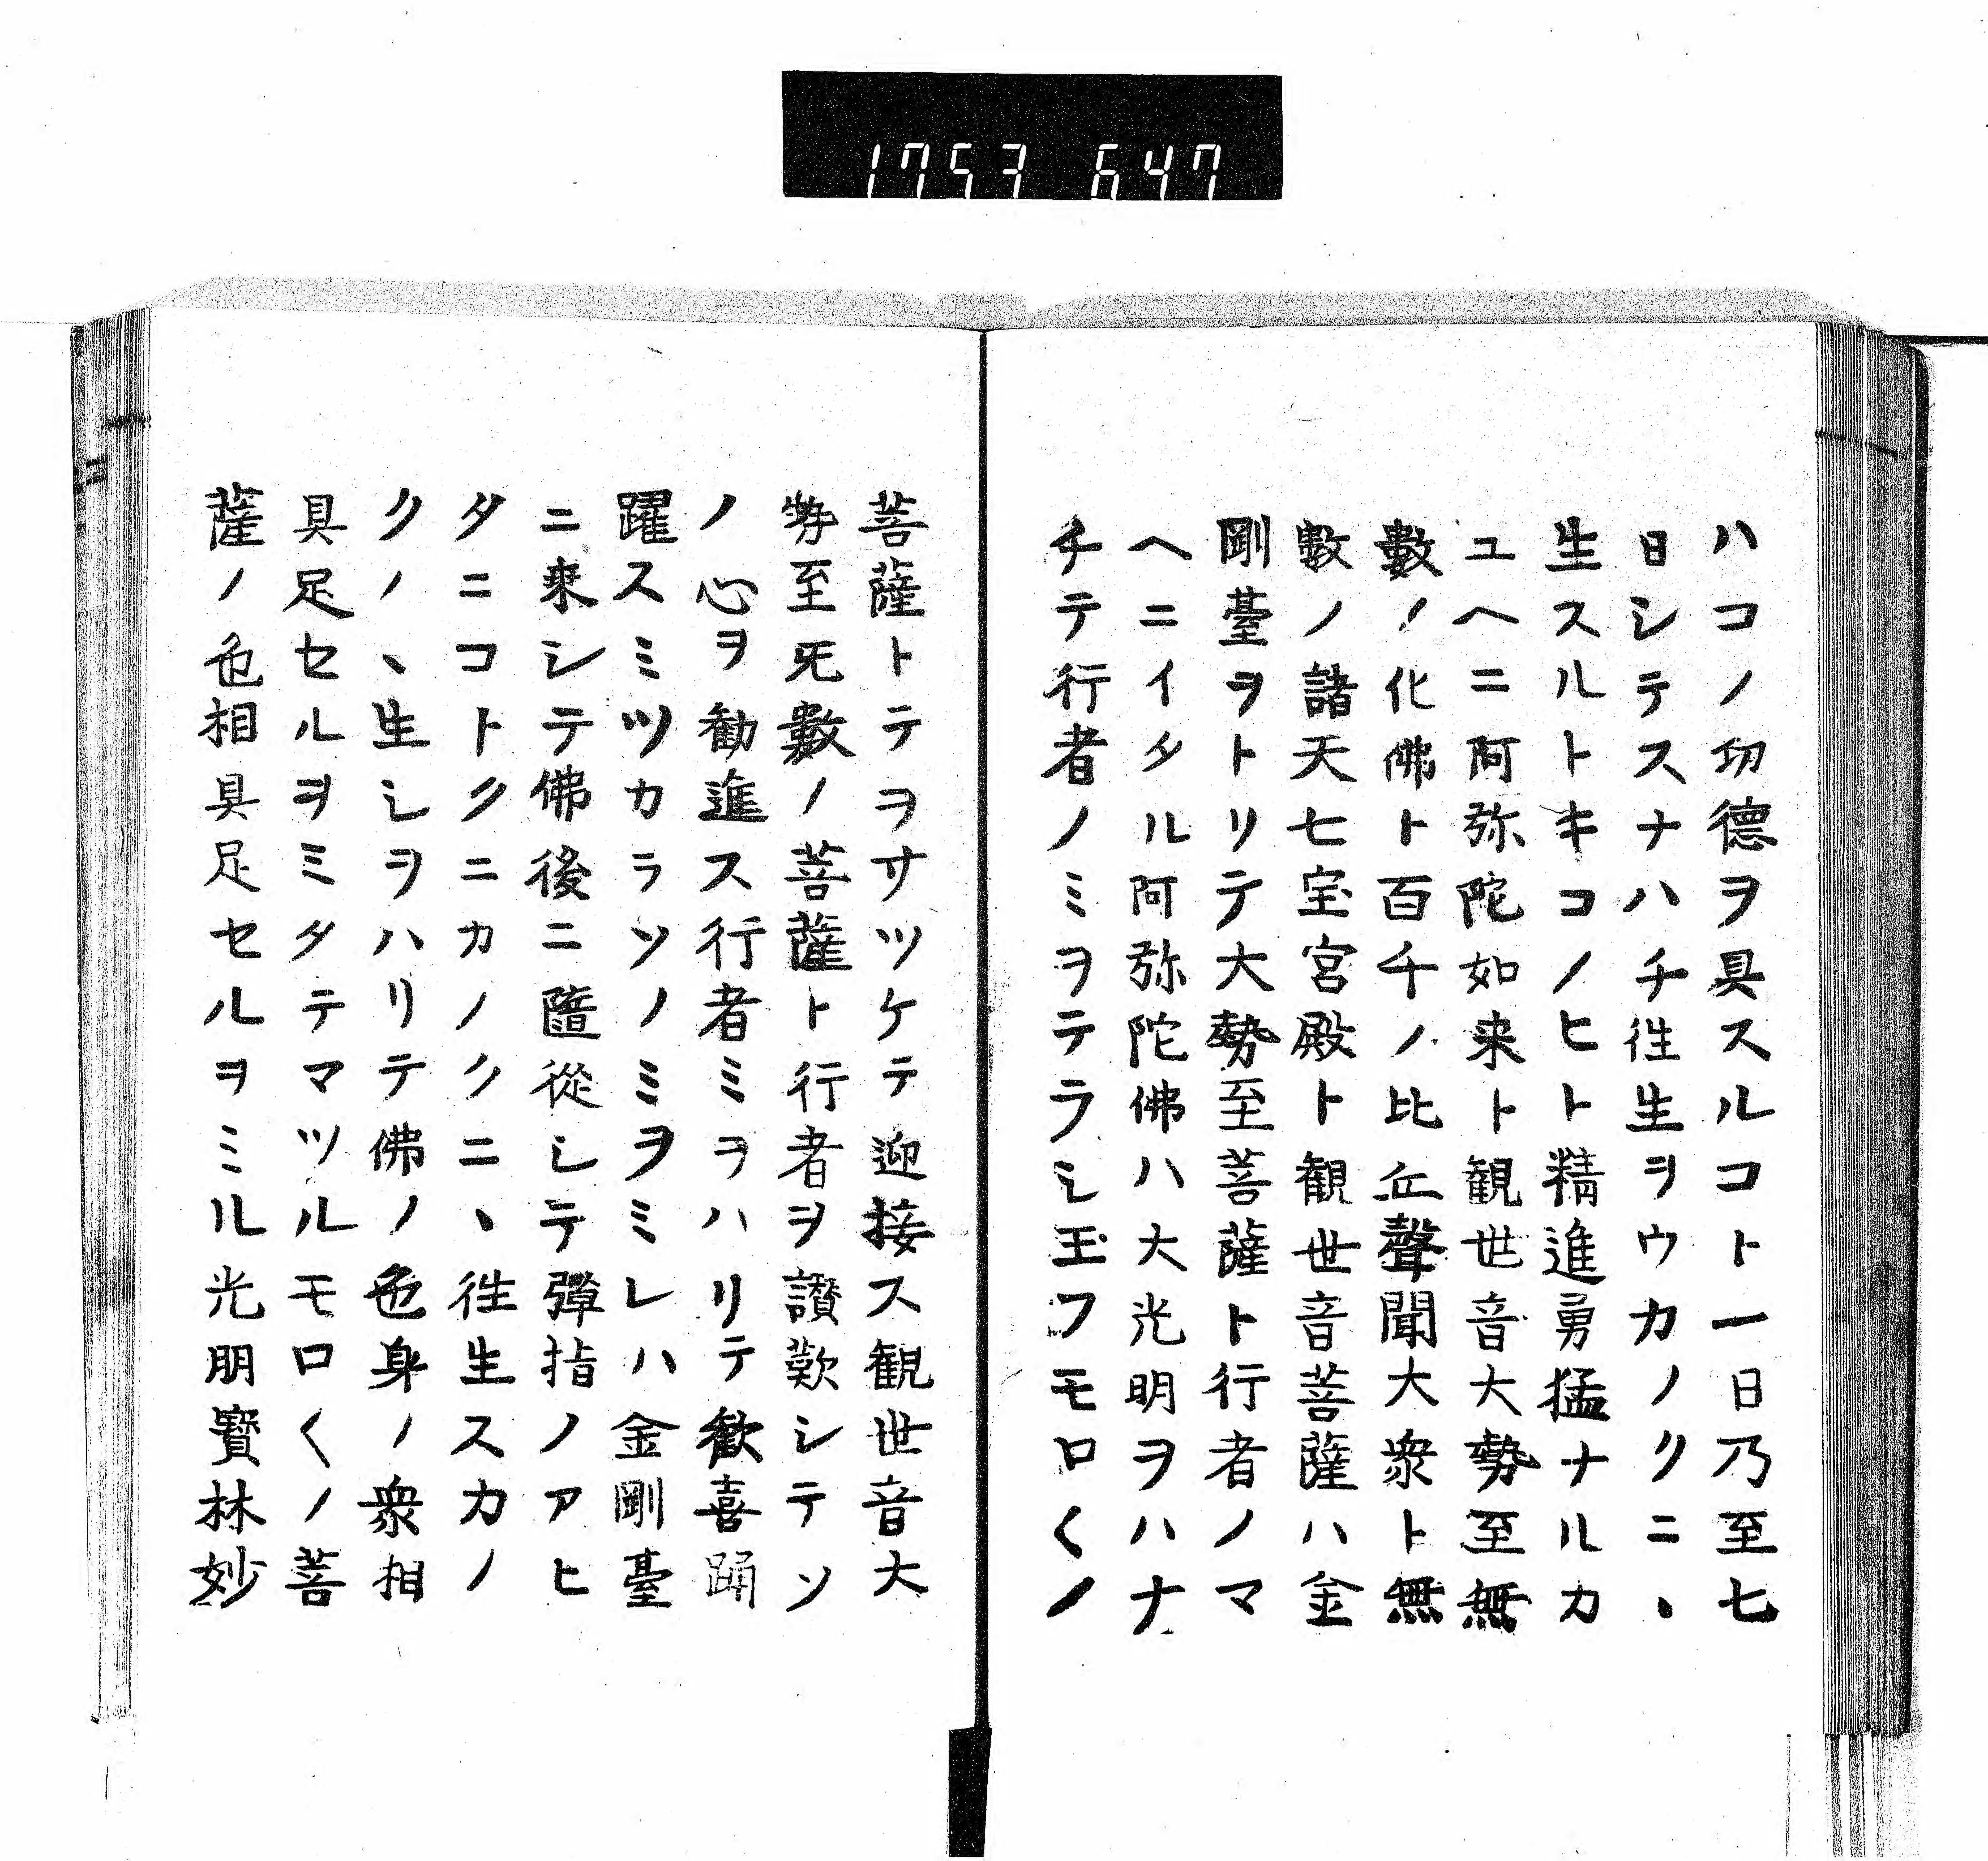 1753 647
ハコノ功德ヲ具スルコト一日乃至七
日シテスナハチ徃生ヲウカノクニヽ
生スルトキコノヒト精進勇猛ナルカ
ユヘニ阿弥陀如来ト観世音大勢至無
數ノ化佛ト百千ノ比丘聲聞大衆ト無
數ノ諸天七宝宮殿ト観世音菩薩ハ金
剛臺ヲトリテ大勢至菩薩ト行者ノマ
ヘニイタル阿弥陀佛ハ大光明ヲハナ
チテ行者ノミヲテラシ玉フモロ〱ノ
菩薩トテヲサツケテ迎接ス観世音大
勢至无數ノ菩薩ト行者ヲ讃歎シテソ
ノ心ヲ勧進ス行者ミヲハリテ歓喜踊
躍スミツカラソノミヲミレハ金剛臺
ニ乗シテ佛後ニ隨從シテ彈指ノアヒ
タニコトクニカノクニヽ徃生スカノ
クノヽ生シヲハリテ佛ノ色身ノ衆相
具足セルヲミタテマツルモロ〱ノ菩
薩ノ色相具足セルヲミル光明寳林妙